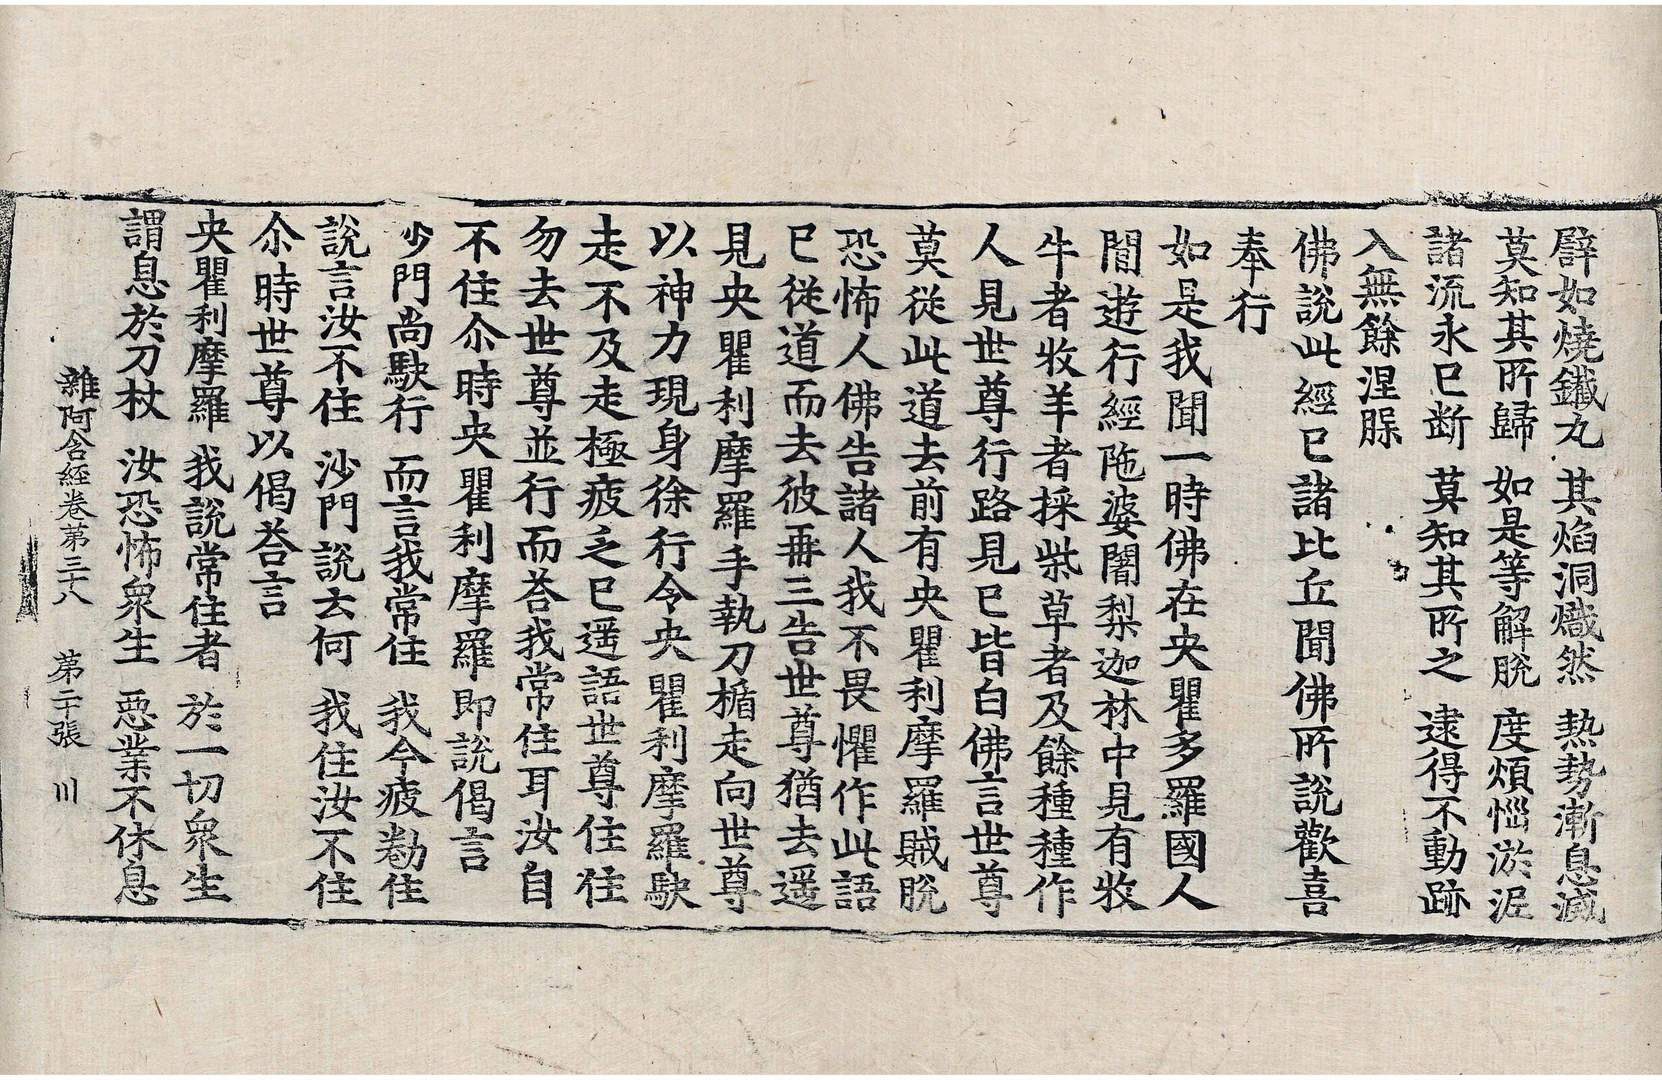 譬如燒鐵丸 其焰洞熾然 熱勢漸息滅
莫知其所歸 如是等解脫 度煩惱淤泥
諸流永已断 莫知其所之 逮得不動跡
入無餘涅槃
佛說此經已諸比丘聞佛所說歡喜
奉行
如是我聞一時佛在央瞿多羅國人
間遊行經陁婆闍梨迦林中見有牧
牛者牧羊者採柴草者及餘種種作
人見世尊行路見已皆白佛言世尊
莫從此道去前有央瞿利摩羅賊脫
恐怖人佛告諸人我不畏懼作此語
已從道而去彼再三告世尊猶去遥
見央瞿利摩羅手執刀楯走向世尊
以神力現身徐行令央瞿利摩羅駃
走不及走極疲乏已遥語世尊住住
勿去世尊並行而荅我常住耳汝自
不住尒時央瞿利摩羅即說偈言
沙門尚駃行 而言我常住 我今疲勌住
說言汝不住 沙門說云何 我住汝不住
尒時世尊以偈荅言
央瞿利摩羅 我說常住者 於一切衆生
謂息於刀杖 汝恐怖衆生 惡業不休息
雜阿含經卷第三十八 第二十張 川